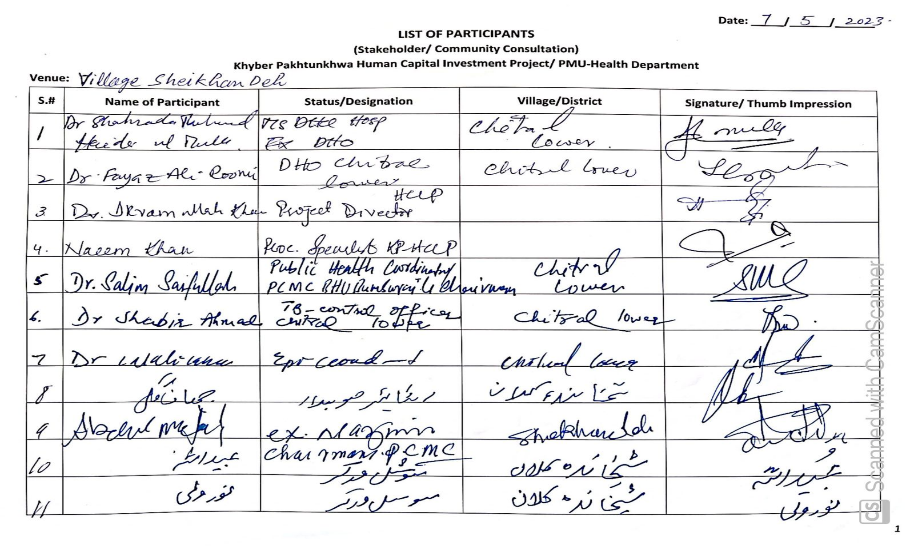 Date: 7 / 5 / 2023.
LIST OF PARTICIPANTS
(Stakeholder/ Community Consultation)
Khyber Pakhtunkhwa Human Capital Investment Project/ PMU-Health Department
Venue: Village Sheikhan Deh
S.# Name of Participant Status/Designation Village/District Signature/ Thumb Impression
1 Dr Shahzada Hosp Chetral
Haider ul Mulk Ex DHO Lower.
2 Dr. Fayaz Ali-Roomi DHO Chitral lower Chitral Lower
3 Dr. Ikram ullah Khan Project Director HCIP
4. Naeem Khan Proc. Specialist KP-HCIP
5 Dr. Salim Saifullah Public Health Coordinator Chitral
PCMC RHU Chairman Lower
6. Dr Shabir Ahmad TB-control officer Chitral lower
chitral lower
7 Dr Chitral lower
8 ریٹائر صوبیدار شیخاندہ کلان
9 Abdul ex. Nazim Shekhandeh
Chairman PCMC
10 عبیداللہ سوشل ورکر شیخاندہ کلان عبیداللہ
11 نورولی سوسل ورکر شیخاندہ کلان نورولی
CS Scanned with CamScanner
1